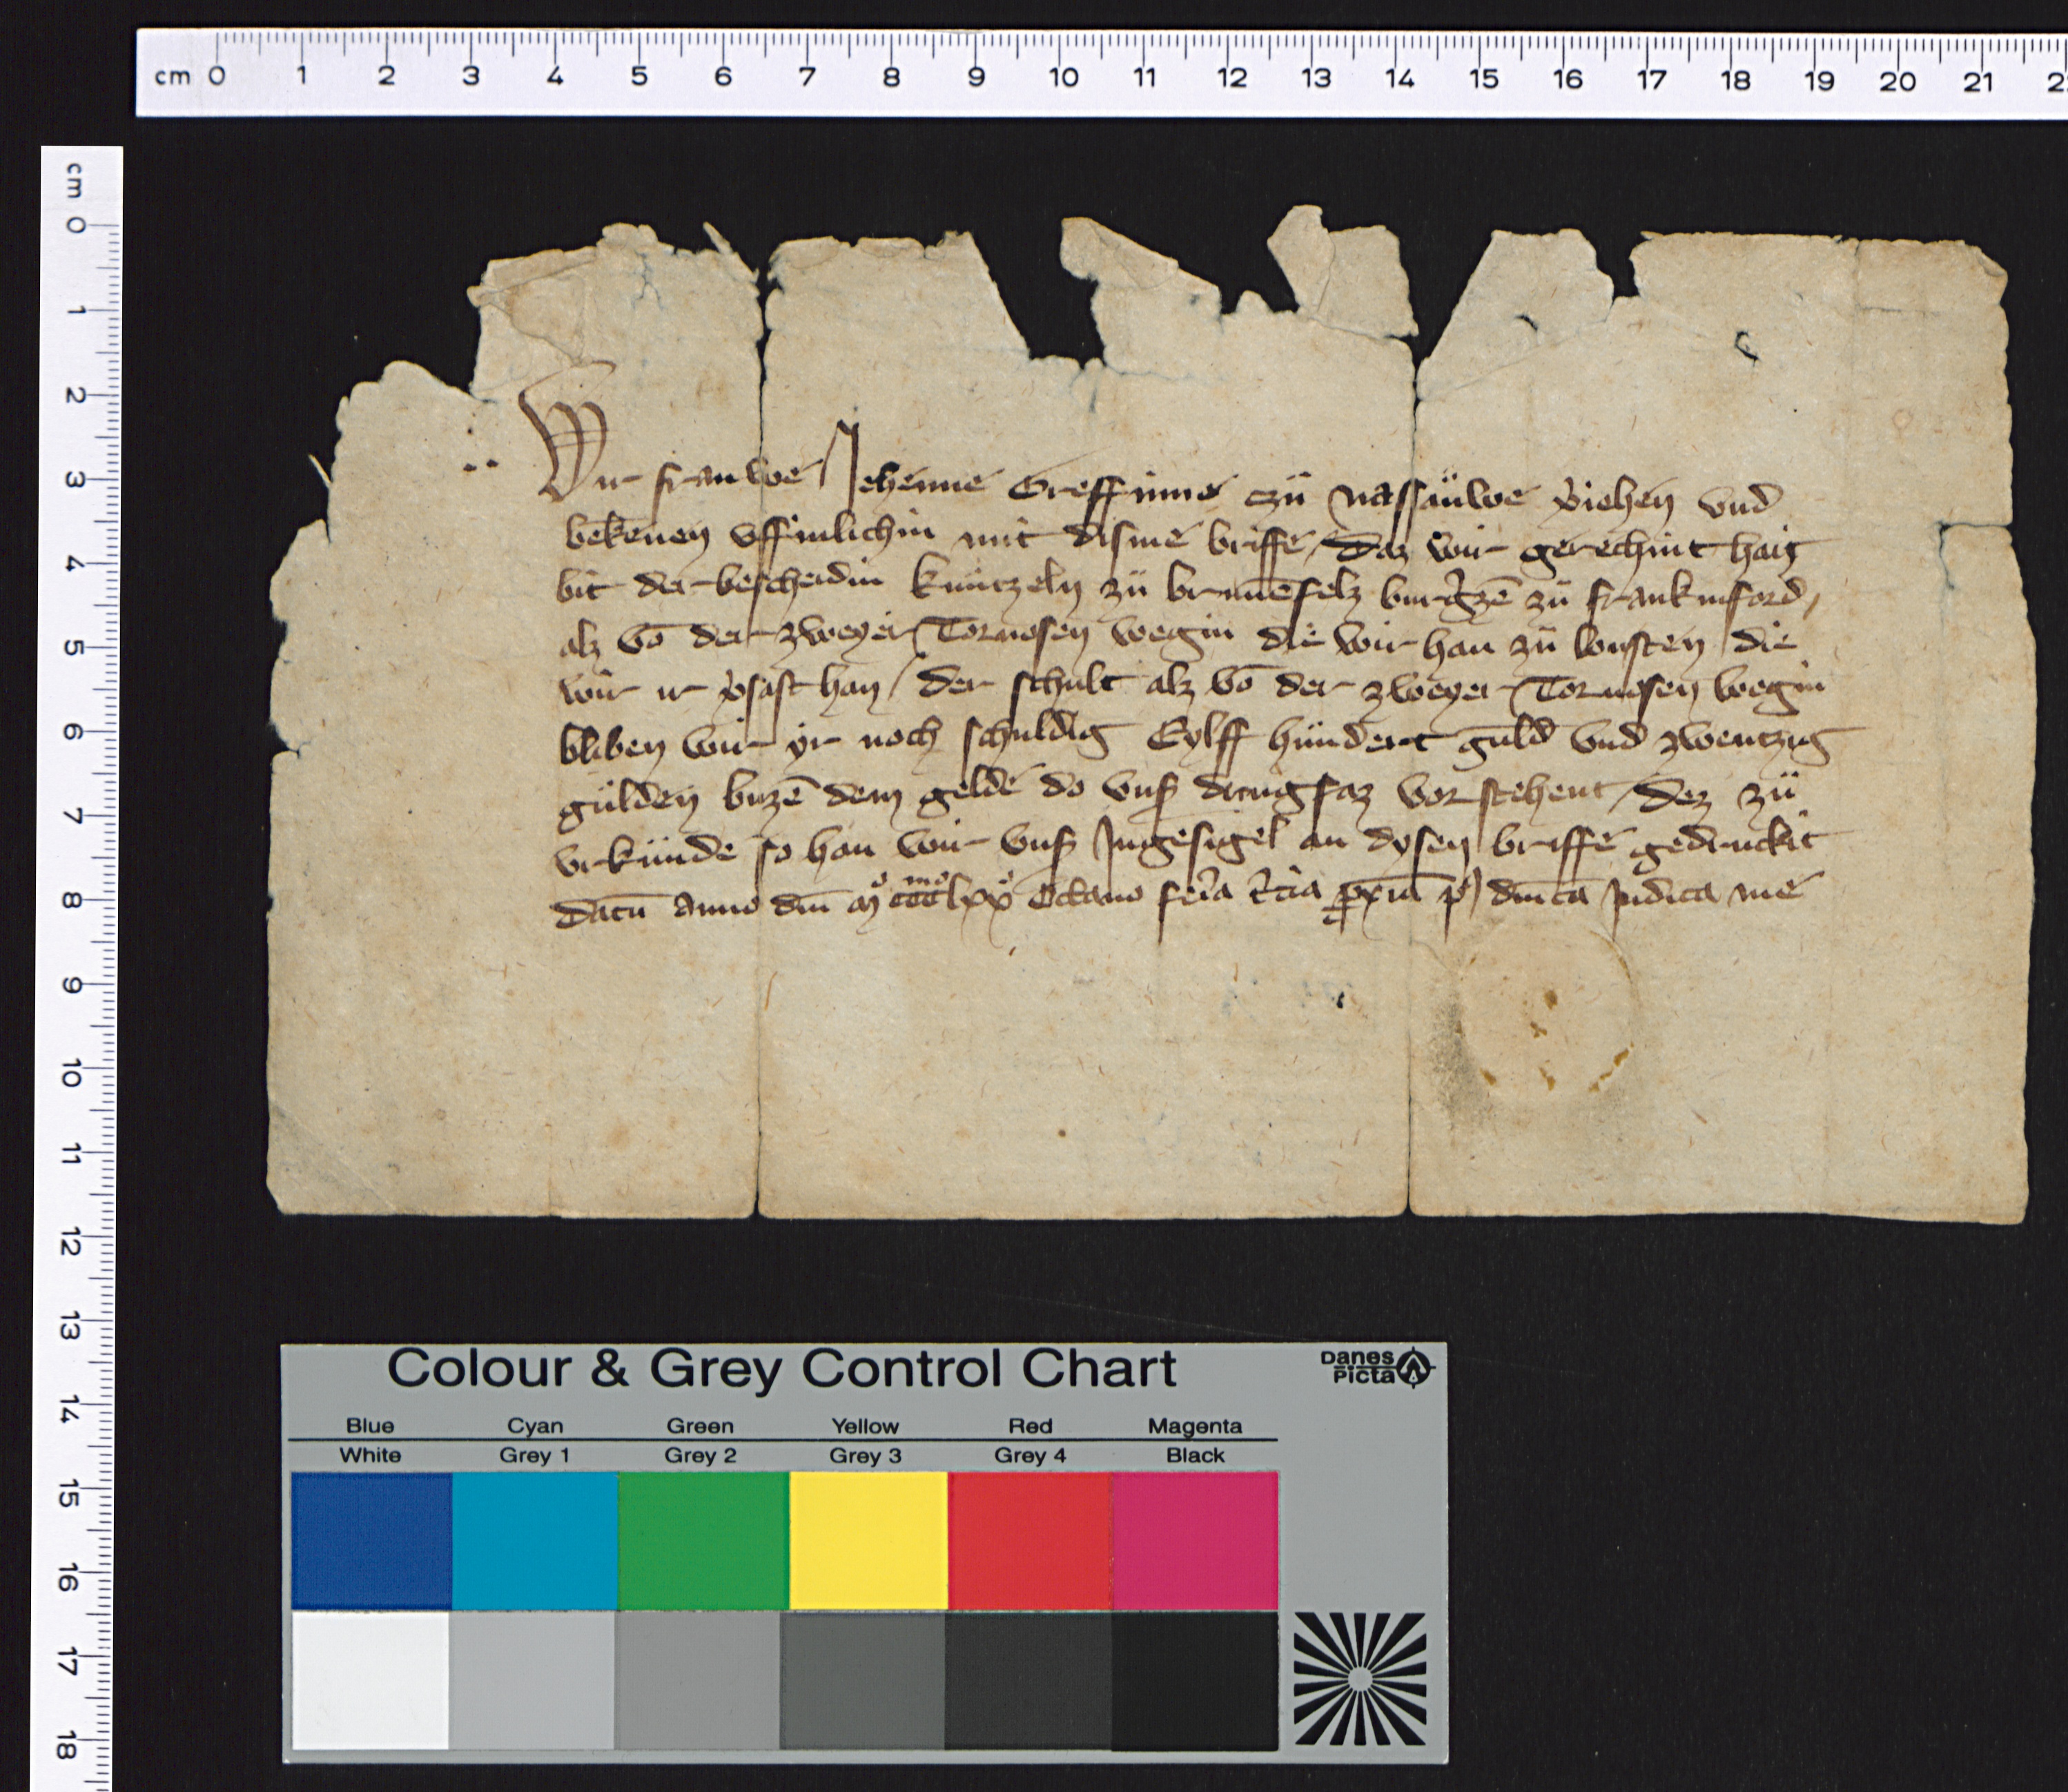 cm 0 1 2 3 4 5 6 7 8 9 10 11 12 13 14 15 16 17 18 19 20 21 2
cm 0 1 2 3 4 5 6 7 8 9 10 11 12 13 14 15 16 17 18
Wir frauwe Jehenne Greffinne czü Nassäuwe v̾iehen vnd
bekēnen vffinlichin mit disme briffe / Daz wir gerechint han
bit der bescheidin kunczeln zü brunēfelz burg̾zē zü frankinford /
alz vō der zweyer Tornosen wegin die wir han zü lonsten die
wir ir v̾sast han / Der schult alz vō der zweyer Tornosen wegin
bliben wir yr noch schuldig Eylff hündert guld vnd zwentzig
gülden buzē dem gelde do vnß drugsaz vor stehent / Dez zü
vrkünde so han wir vnß Ingesigel an dysen briffe gedruckit
Datū Anno dm̄ mº cccmº lxxº Octauo feria t̾cia ꝓxīa p9 dm̄cā Judica me
Colour & Grey Control Chart
Danes
Picta
Blue Cyan Green Yellow Red Magenta
White Grey 1 Grey 2 Grey 3 Grey 4 Black